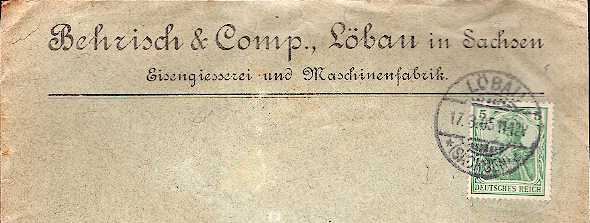 Behrisch & Comp., Löbau in Sachsen
Eisengiesserei und Maschinenfabrik.
LÖBAU
5 5
17.3.05 11-12V
*(SACHSEN)
DEUTSCHES REICH